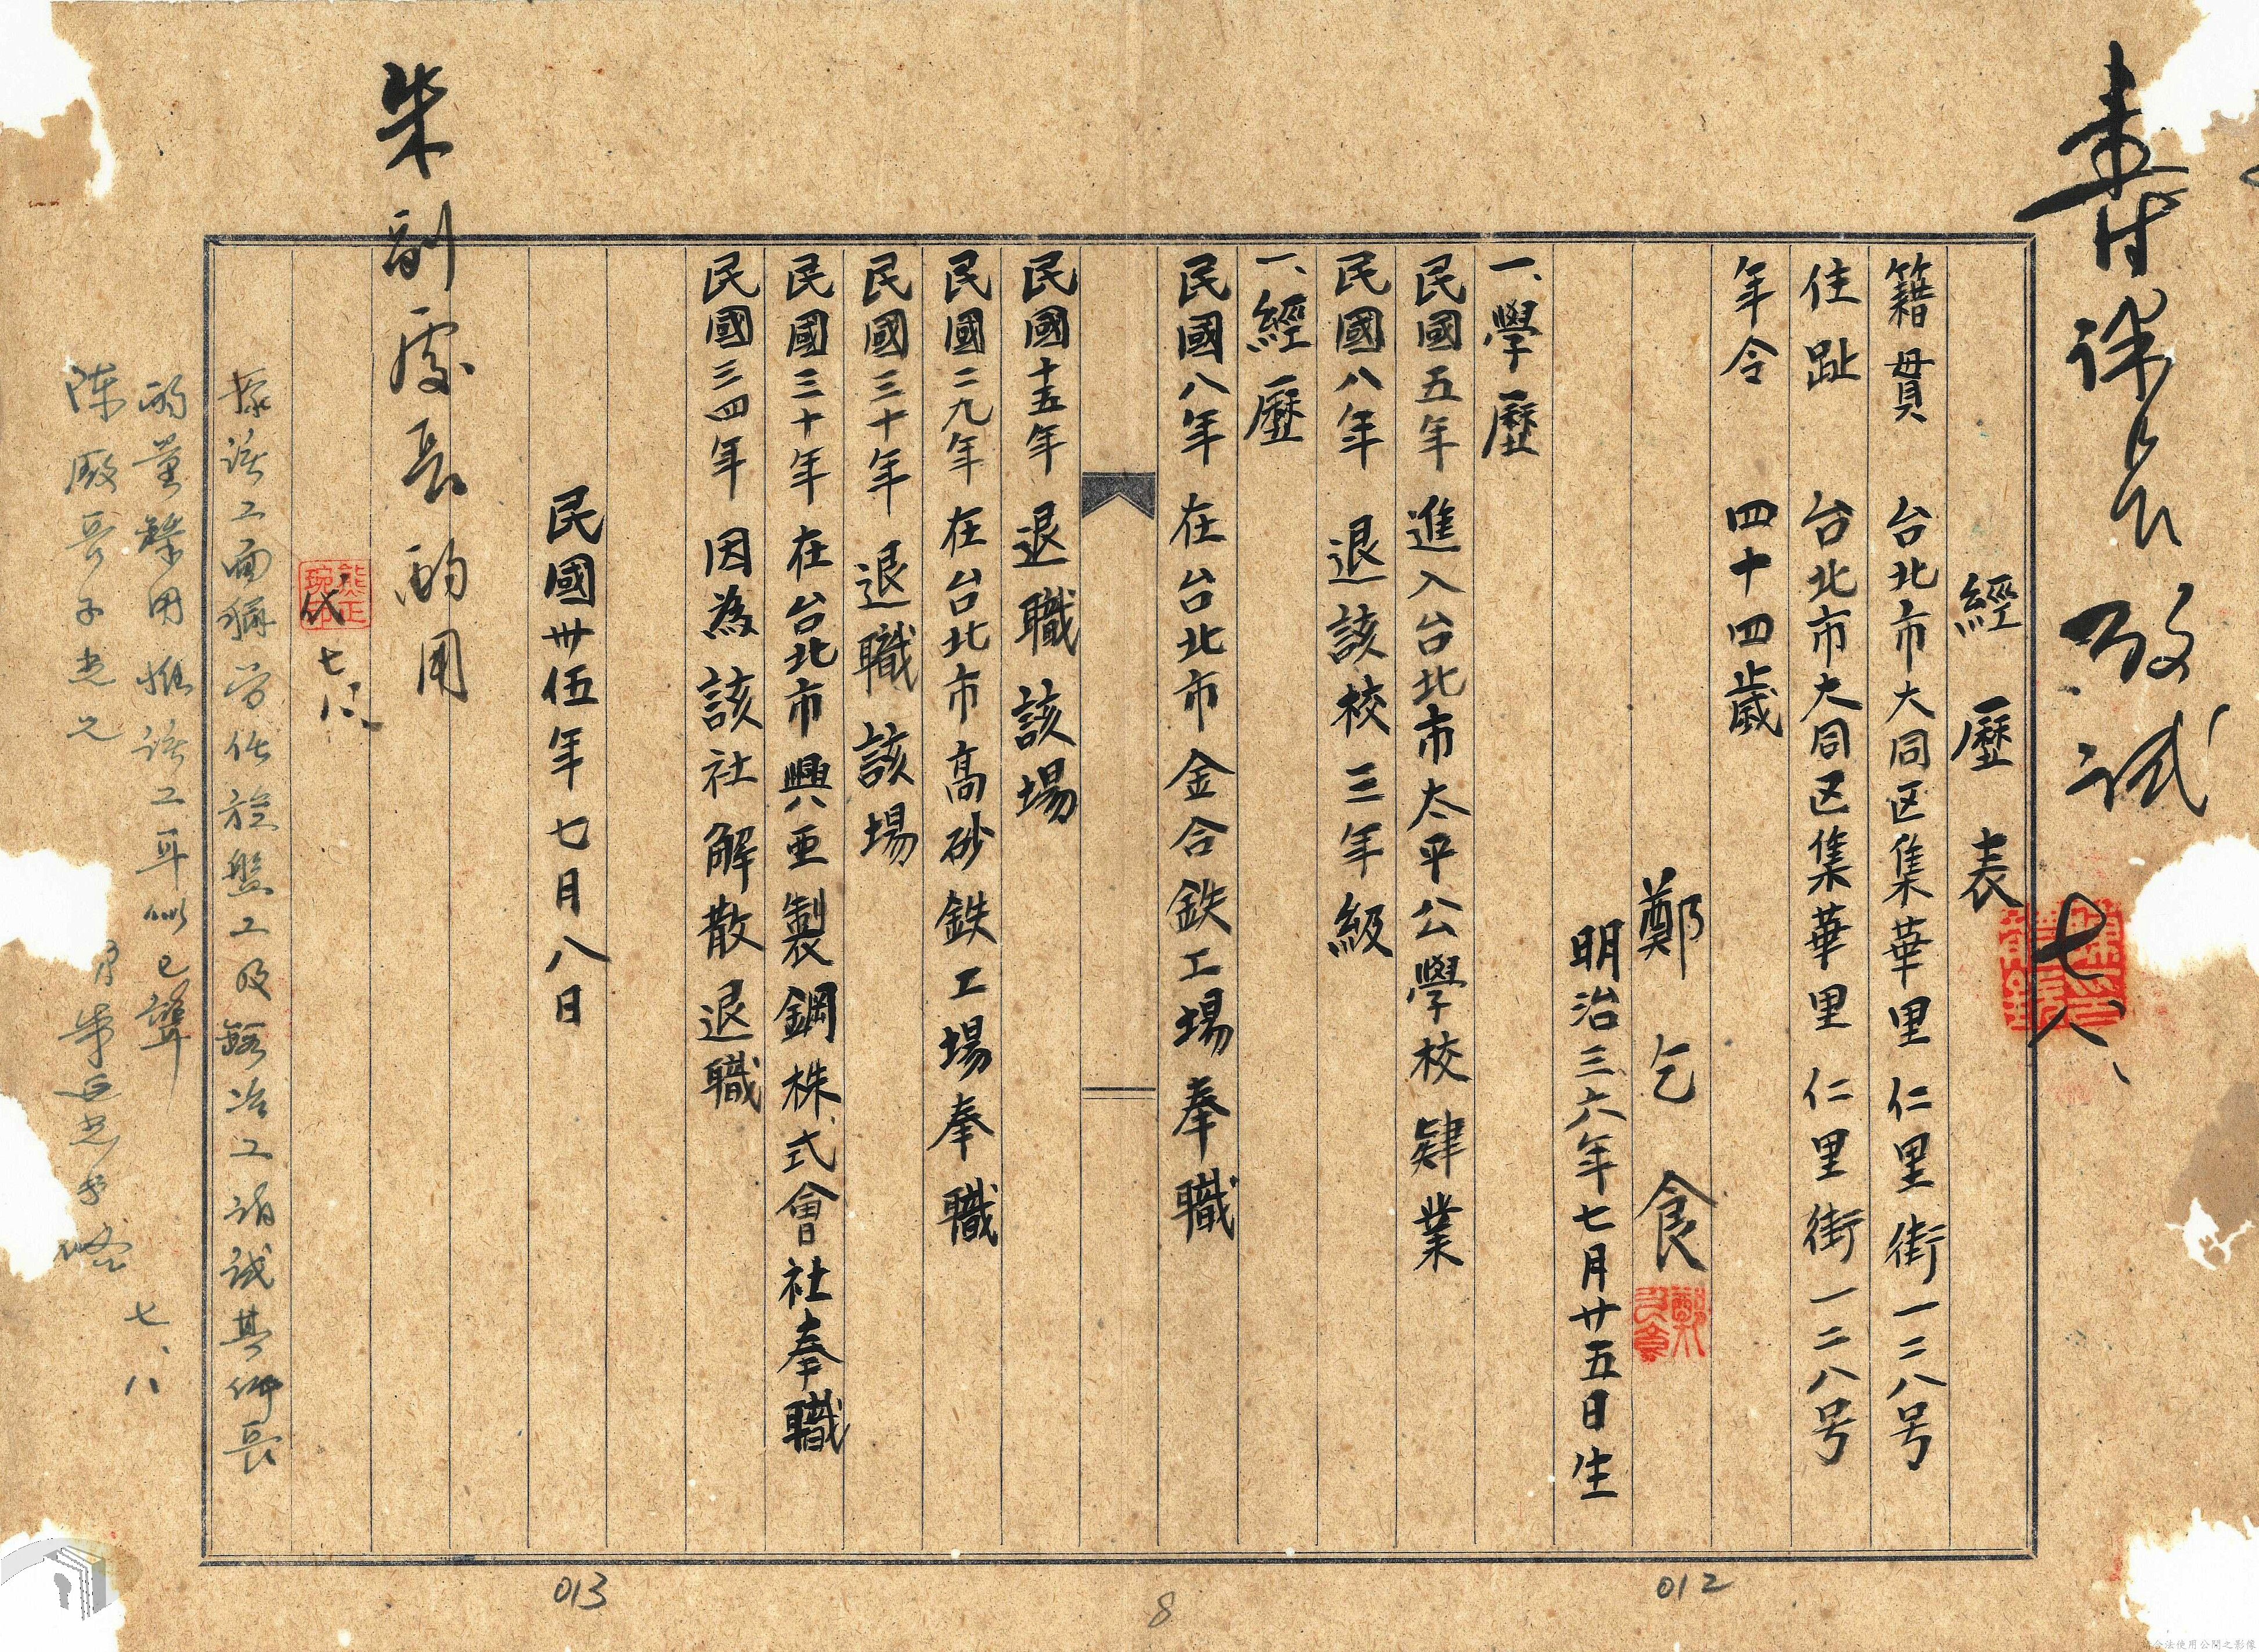 經歷表
籍貫 台北市大同区集華里仁里街一二八号
住趾 台北市大同区集華里仁里街一二八号
年令 四十四歲
鄭乞食
明治三六年七月廿五日生
一、學歷
民國五年 進入台北市太平公學校肄業
民國八年 退該校三年級
一、經歷
民國八年 在台北市金合鉄工場奉職
民國十五年 退職該場
民國二九年 在台北市高砂鉄工場奉職
民國三十年 退職該場
民國三十年 在台北市興亜製鋼株式會社奉職
民國三四年 因為該社解散退職
民國卅伍年七月八日
朱副處長酌用
七、八
據該工面稱曾作旋盤工及鎔冶工請試其所長
酌量錄用惟該工耳似已聾
七、八
013
8
012